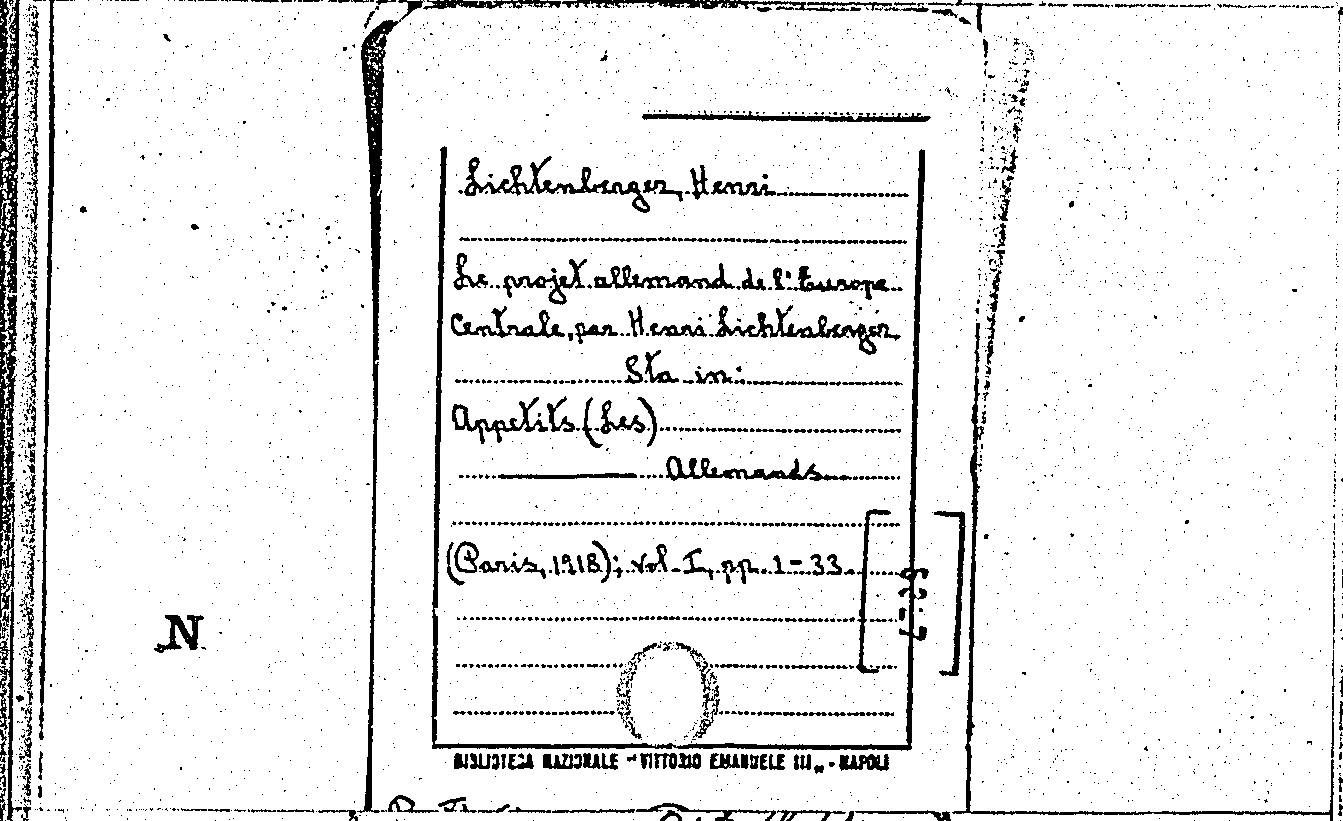 Lichtenberger, Henri
Le projet allemand de l'Europe
Centrale, par Henri Lichtenberger
Sta in:
Appetits (Les)
Allemands
(Paris, 1918); vol. I, pp. 1-33.
N
BIBLIOTECA NAZIONALE "VITTORIO EMANUELE III„ - NAPOLI